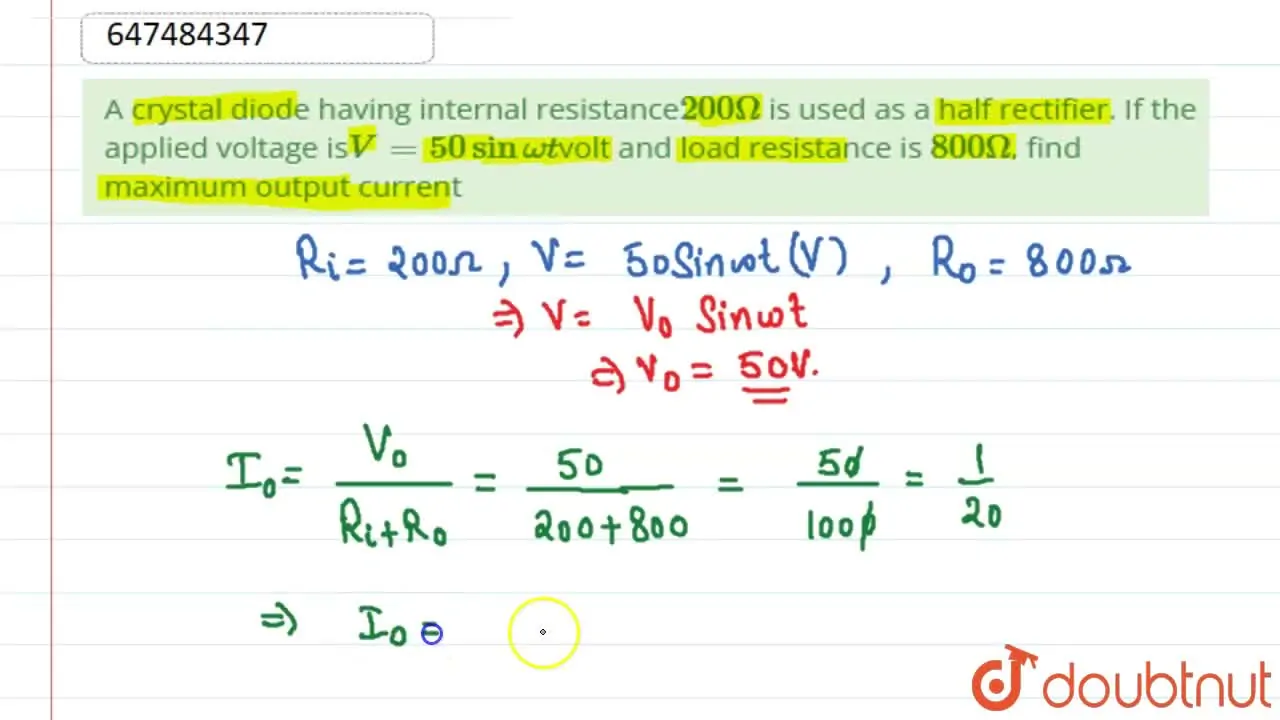 647484347
A crystal diode having internal resistance200Ω is used as a half rectifier. If the
applied voltage isV = 50 sin ωtvolt and load resistance is 800Ω, find
maximum output current
Ri = 200Ω, V = 50Sinωt (V) , Ro = 800Ω
⇒ V = V0 Sinωt
⇒ V0 = 50V.
I0 = V0/(Ri+R0) = 50/(200+800) = 50/1000 = 1/20
⇒ I0 =
doubtnut